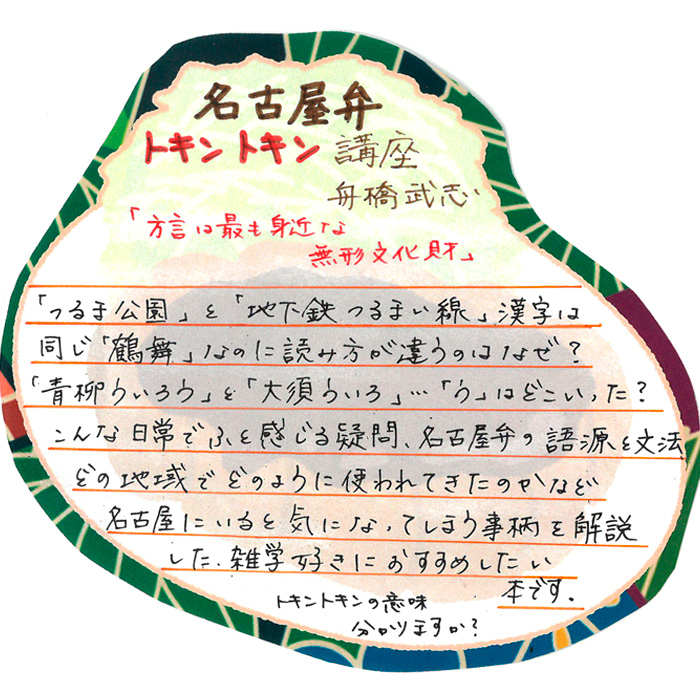 名古屋弁
トキントキン講座
舟橋武志
「方言は最も身近な
無形文化財」
「つるま公園」と「地下鉄つるまい線」漢字は
同じ「鶴舞」なのに読み方が違うのはなぜ?
「青柳ういろう」と「大須ういろ」…「う」はどこいった?
こんな日常でふと感じる疑問、名古屋弁の語源と文法
どの地域でどのように使われてきたのかなど
名古屋にいると気になってしまう事柄を解説
した、雑学好きにおすすめしたい
本です。
トキントキンの意味
分かりますか?